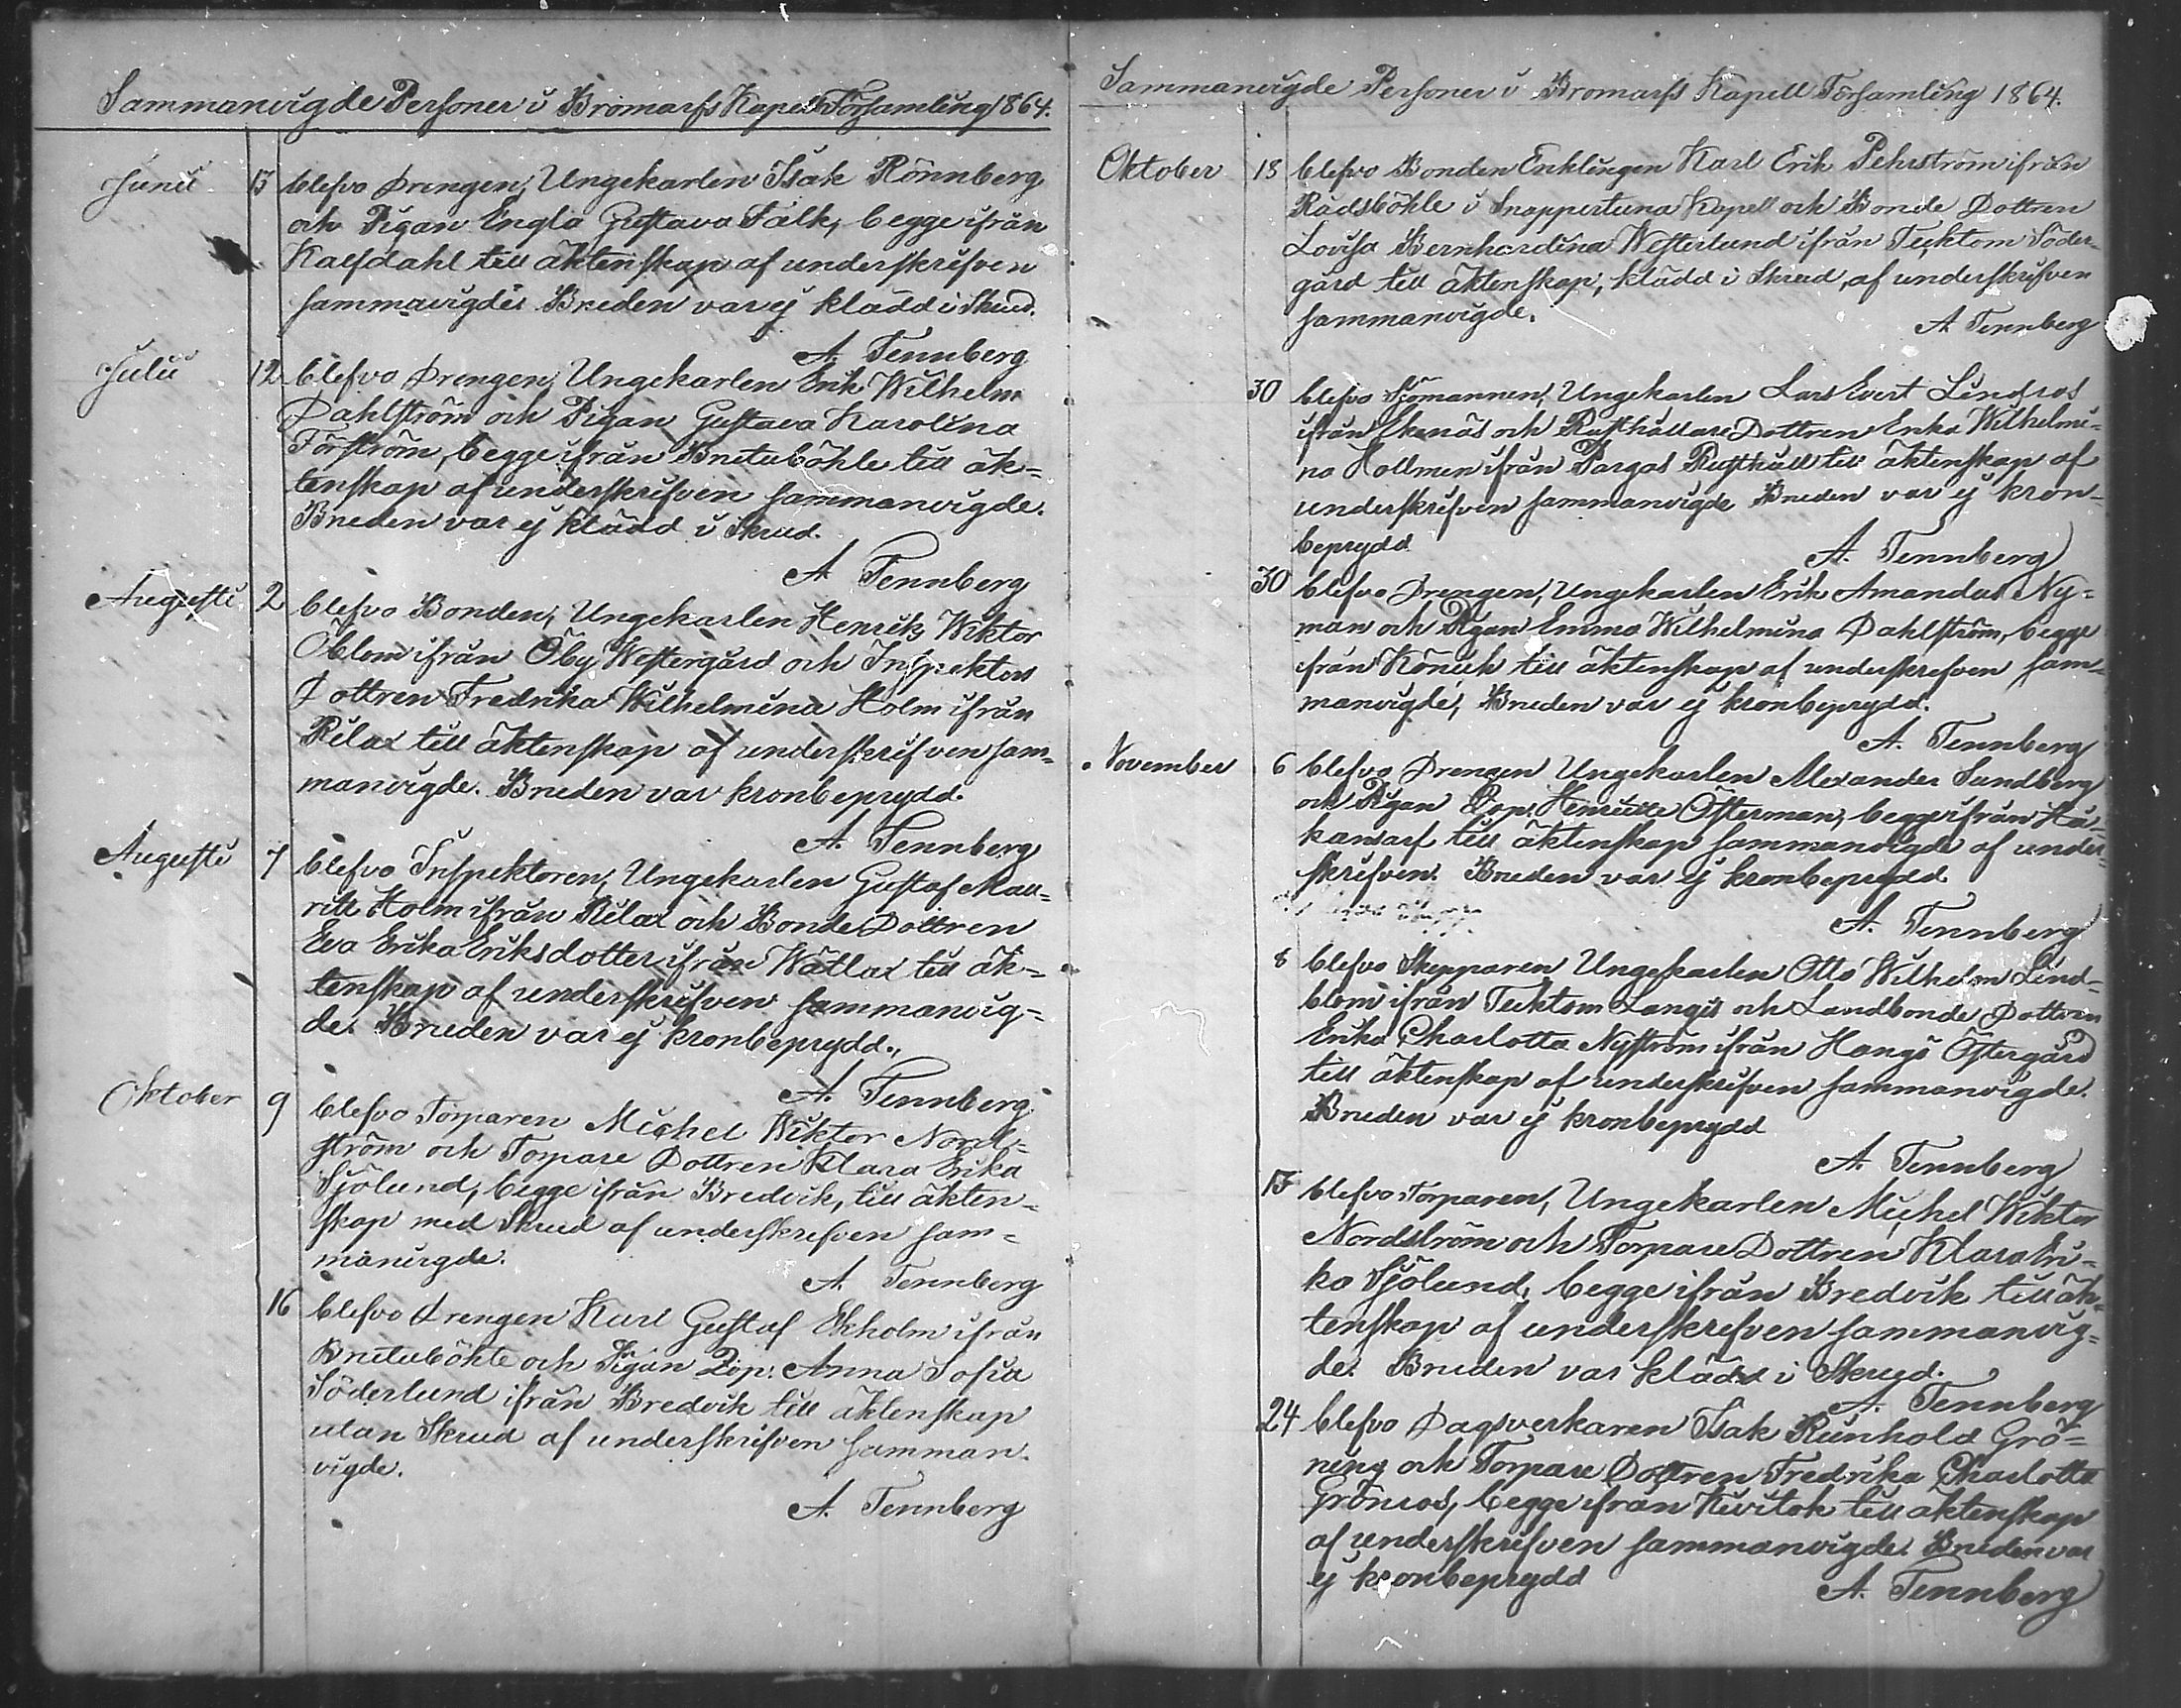 Sammanvigde Personer i Bromarfs Kapell Församling 1864.
Junii 13 blefvo Drengen, Ungekarlen Isak Rönnberg
och Pigan Engla Gustava Falk, begge ifrån
Kalfdahl till äktenskap af underskrifven
sammanvigde. Bruden var ej klädd i Skrud.
A. Tennberg
Julii 12 blefvo Drengen, Ungekarlen Erik Wilhelm
Dahlström och Pigan Gustava Karolina
Förström, begge ifrån Bruteböhle till äk-
tenskap af underskrifven sammanvigde.
Bruden var ej klädd i Skrud.
A Tennberg
Augusti 2 blefvo Bonden, Ungekarlen Henrik Wiktor
Öblom ifrån Öby Westergård och Inspektors
Dottren Fredrika Wilhelmina Holm ifrån
Rilax till äktenskap af underskrifven sam-
manvigde. Bruden var kronbeprydd.
A. Tennberg
Augusti 7 blefvo Inspektoren, Ungekarlen Gustaf Mau-
ritz Holm ifrån Rilax och Bonde Dottren
Eva Erika Eriksdotter ifrån Wättlax till äk-
tenskap af underskrifven sammanvig-
de. Bruden var ej kronbeprydd.,
A. Tennberg
Oktober 9 blefvo Torparen Michel Wiktor Nord-
ström och Torpare Dottren Klara Erika
Sjölund, begge ifrån Bredvik, till äkten-
skap med Skrud af underskrifven sam-
manvigde.
A. Tennberg
16 blefvo Drengen Karl Gustaf Ekholm ifrån
Bruteböhle och Pigan Anna Sofia
Söderlund ifrån Bredvik till äktenskap
utan Skrud af underskrifven samman-
vigde.
A. Tennberg
Sammanvigde Personer i Bromarfs Kapell Församling 1864.
Oktober 18 blefvo Bonden Enklingen Karl Erik Pehrström ifrån
Rådsböhle i Snappertuna Kapell och Bonde Dottren
Lovisa Bernhardina Westerlund ifrån Tecktom Söder-
gård till äktenskap, klädd i Skrud, af underskrifven
sammanvigde.
A Tennberg
30 blefvo Sjömannen, Ungekarlen Lars Evert Lindros
ifrån Ekenäs och Rusthållare Dottren Erika Wilhelmi-
na Hollmen ifrån Pargas Rusthåll till äktenskap af
underskrifven sammanvigde Bruden var ej kron-
beprydd
A. Tennberg
30 blefvo Drengen, Ungekarlen Erik Amandus Ny-
man och Pigan Emma Wilhelmina Dahlström, begge
ifrån till äktenskap af underskrefven sam-
manvigde, Bruden var ej kronbeprydd.
A. Tennberg
November 6 blefvo Drengen Ungekarlen Alexander Sundberg
och Pigan Henriette Österman, begge ifrån Hå-
kansarf till äktenskap sammanvigde af under-
skrifven. Bruden var ej kronbeprydd
A. Tennberg
8 blefvo Skepparen Ungekarlen Otto Wilhelm Lind-
blom ifrån Tecktom Langis och Landbonde Dottren
Erika Charlotta Nyström ifrån Hangö Östergård
till äktenskap af underskrifven sammanvigde.
Bruden var ej kronbeprydd
A. Tennberg
13 blefvo Torparen, Ungekarlen Michel Wiktor
Nordström och Torpare Dottren Klara Eri-
ka Sjölund, begge ifrån Bredvik till äk-
tenskap af underskrefven sammanvig-
de. Bruden var klädd i Skrud.
A. Tennberg
24 blefvo Dagsverkaren Isak Reinhold Grö-
ning och Torpare Dottren Fredrika Charlotta
Grönroos, begge ifrån Kivitok till äktenskap
af underskrifven sammanvigde. Bruden var
ej kronbeprydd
A. Tennberg